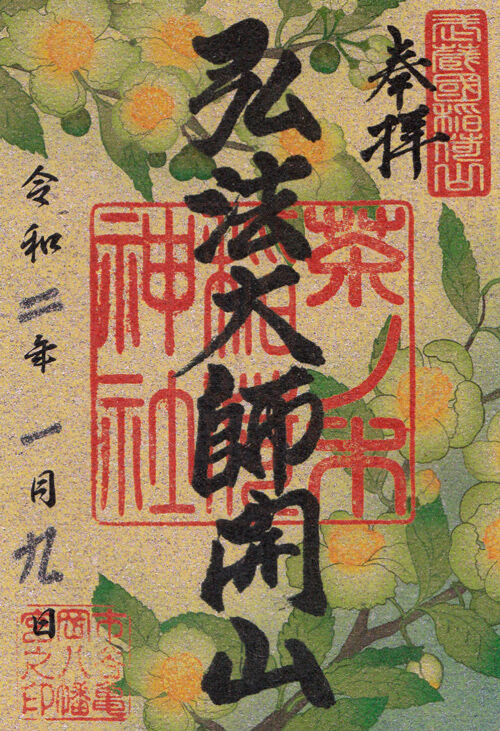 武蔵國稲荷山
奉拝
弘法大師開山
茶ノ木
稲荷
神社
令和二年一月九日
市谷亀
岡八幡
宮之印